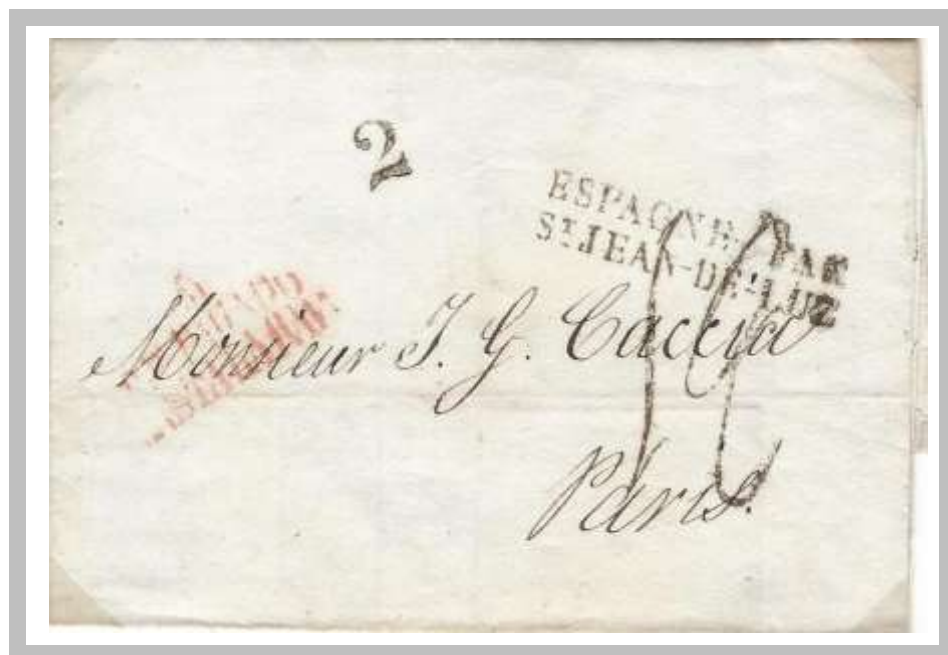 2
ESPAGNE PAR
ST JEAN-DE-LUZ
Monsieur J. G. Caccia
Paris.